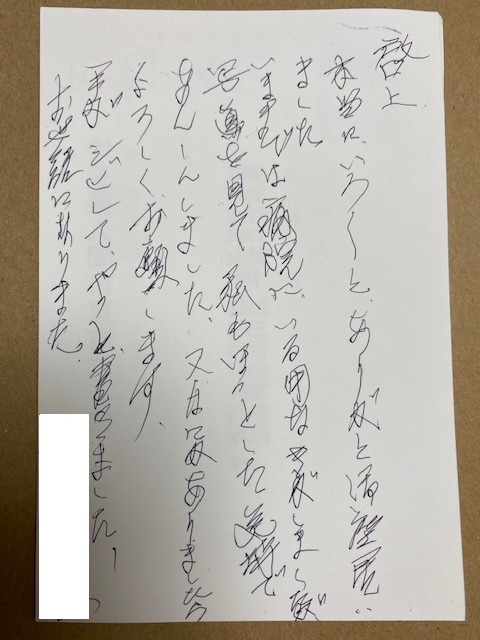 啓上、
本当に、いろ〱と、ありがと御座居い
ました
いままでは病院に、いる用な きがしましたが
写真を見て 私もほっとした
あんしんしました、又なに
よろしく、お願いします、
手が して、やっと、書きました、
お世話になりました。